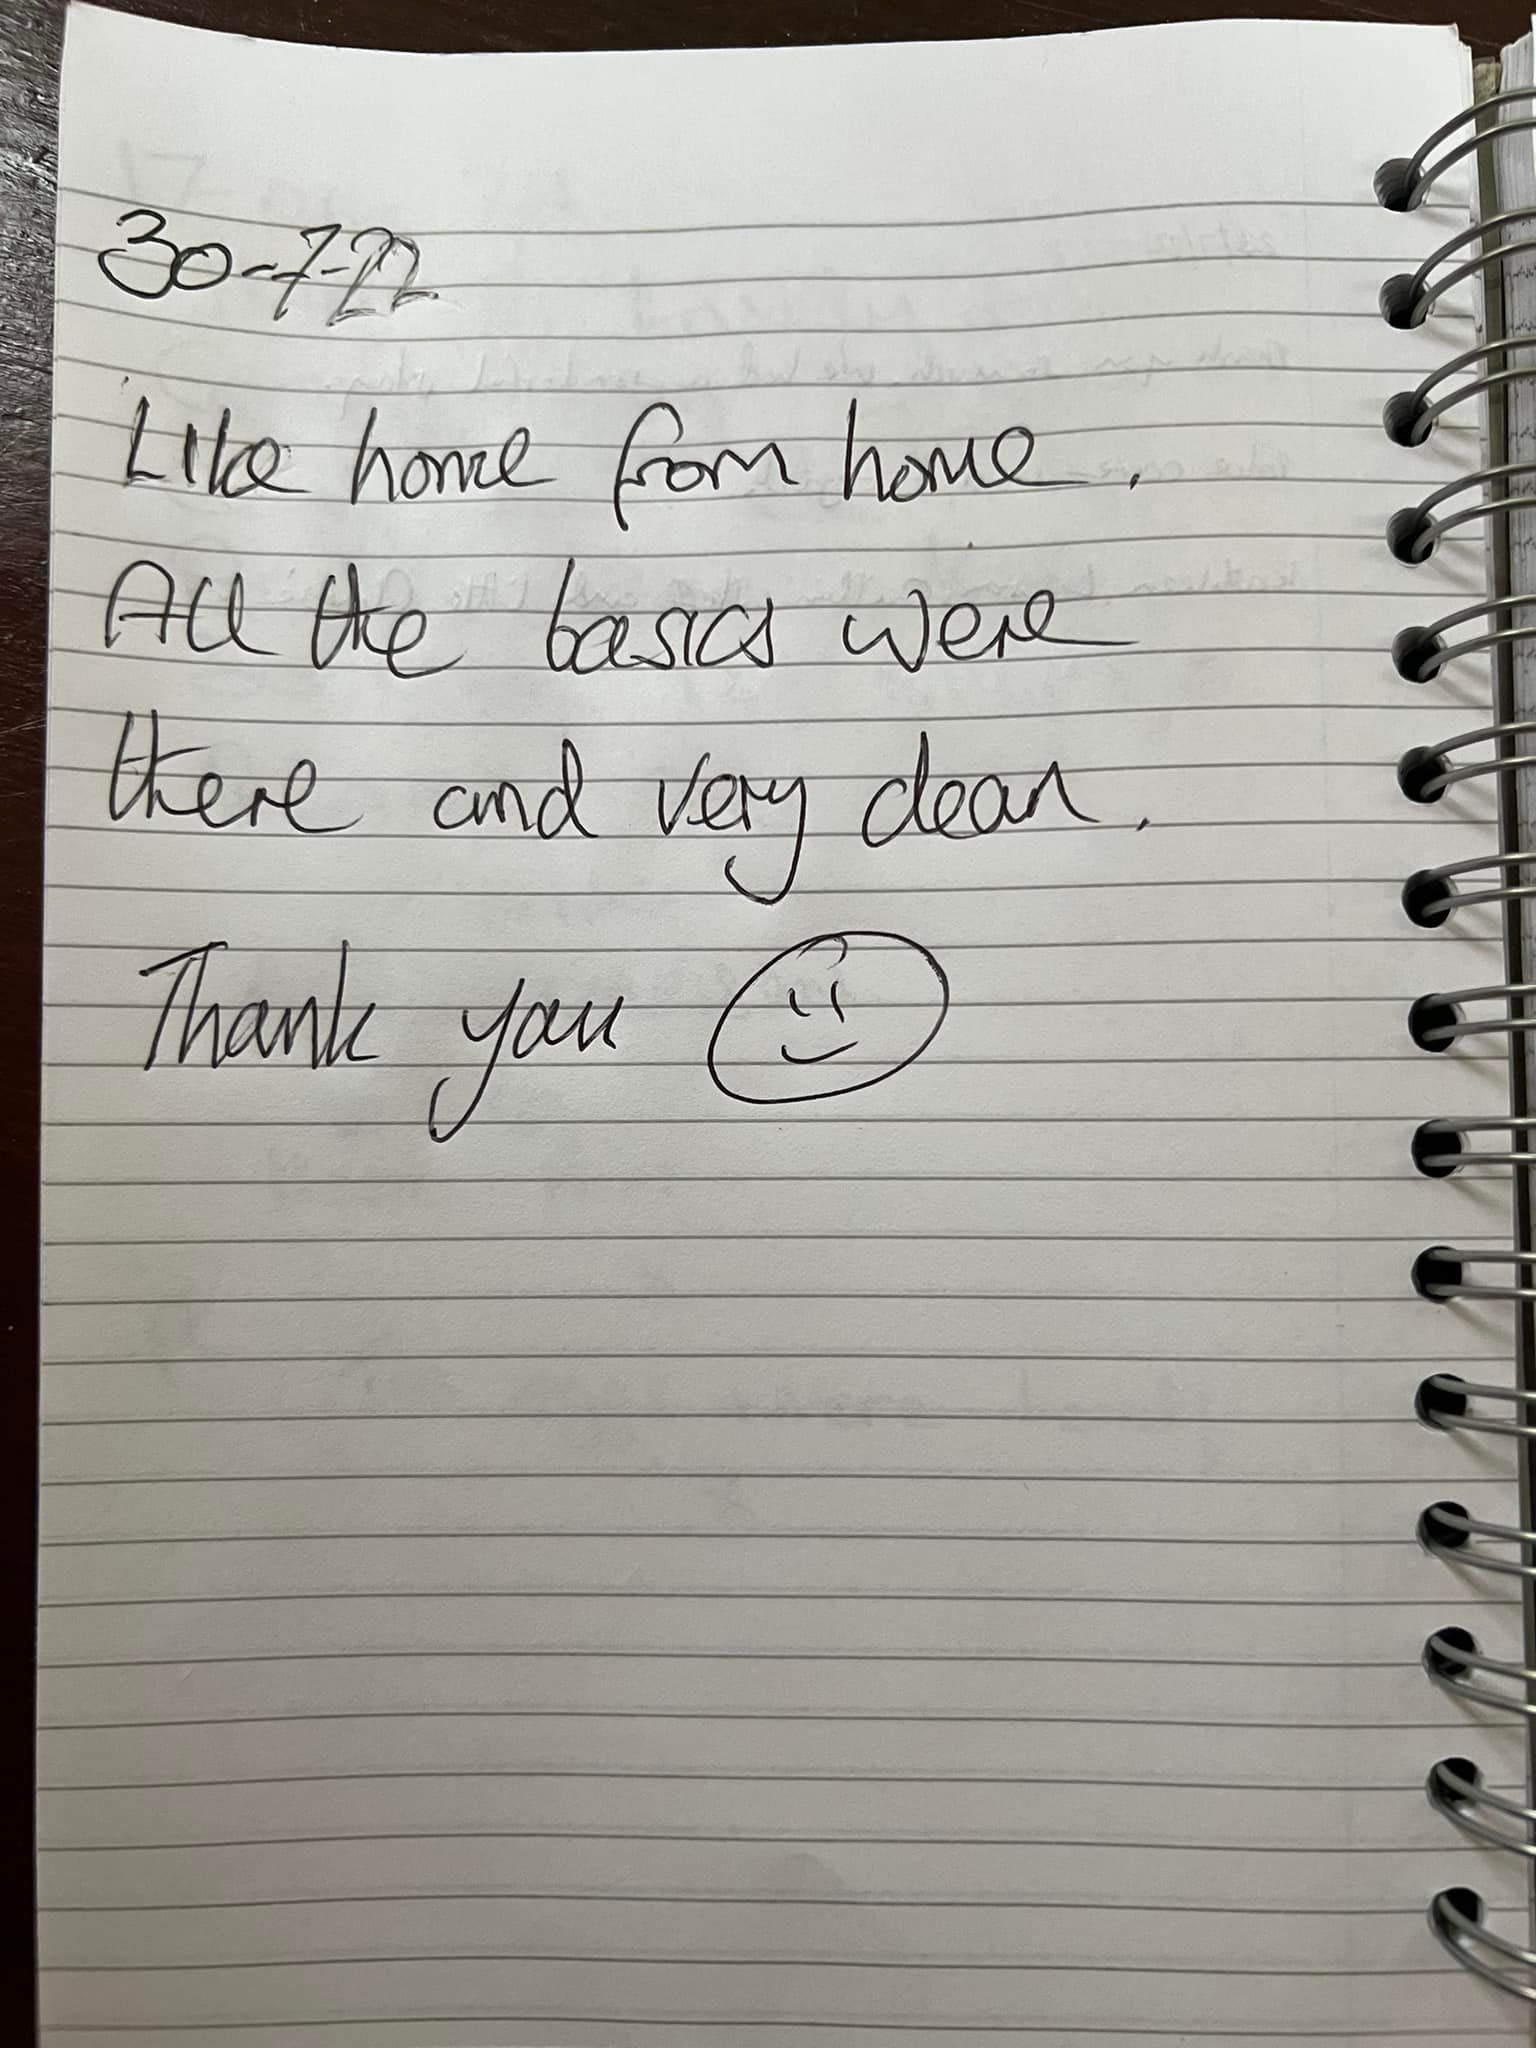 30-7-22
Like home from home.
All the basics were
there and very clean.
Thank you